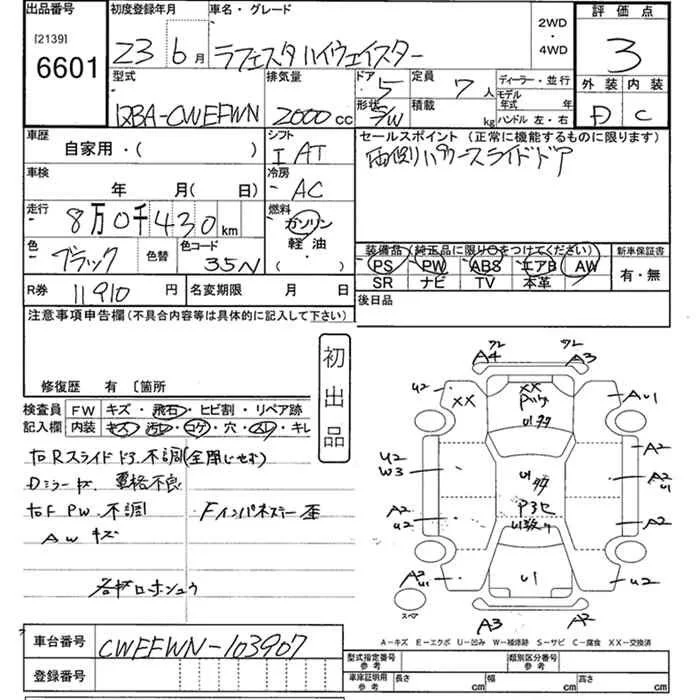 出品番号 初度登録年月 車名・グレード 2WD ・ 4WD 評価点
[2139]
6601
23 6月 ラフェスタハイウェイスター 3
型式 排気量 ドア 定員 ディーラー・並行 外装 内装
CWEFWN 2000cc 5 7人 モデル年式 年
形状 S/W 積載 kg ハンドル 左・右 D C
車歴 シフト セールスポイント(正常に機能するものに限ります)
自家用・( ) I AT 両側パワースライドドア
車検 冷房
年 月( 日) AC
走行 燃料
8万0千430km ガソリン
軽油
・( )
色 ブラック 色替 色コード 35N
装備品(純正品に限り○をつけてください) 新車保証書
PS PW ABS エアB AW 有・無
SR ナビ TV 本革
R券 11910円 名変期限 月 日 後日品
注意事項申告欄(不具合内容等は具体的に記入して下さい)
初出品
修復歴 有 〔箇所
検査員 FW キズ・飛石・ヒビ割・リペア跡
記入欄 内装 キズ・汚レ・コゲ・穴・スレ・キレ
Rスライドドア不調(全閉じせず)
Dミラーキズ 格納不良
F PW 不調 Fインパネステー歪
AW キズ
A4 A3
U2 XX XX Pハゲ AU1
U2
W3 U1 A2
A2 U1
A2
U2 A2
A2
U1 U1 U2
スペア
A3 A2
A-キズ E-エクボ U-凹み W-補修跡 S-サビ C-腐食 XX-交換済
車台番号 CWEFWN-103907
型式指定番号 参考 類別区分番号 参考
登録番号 車庫証明用 参考 長さ cm 幅 cm 高さ cm